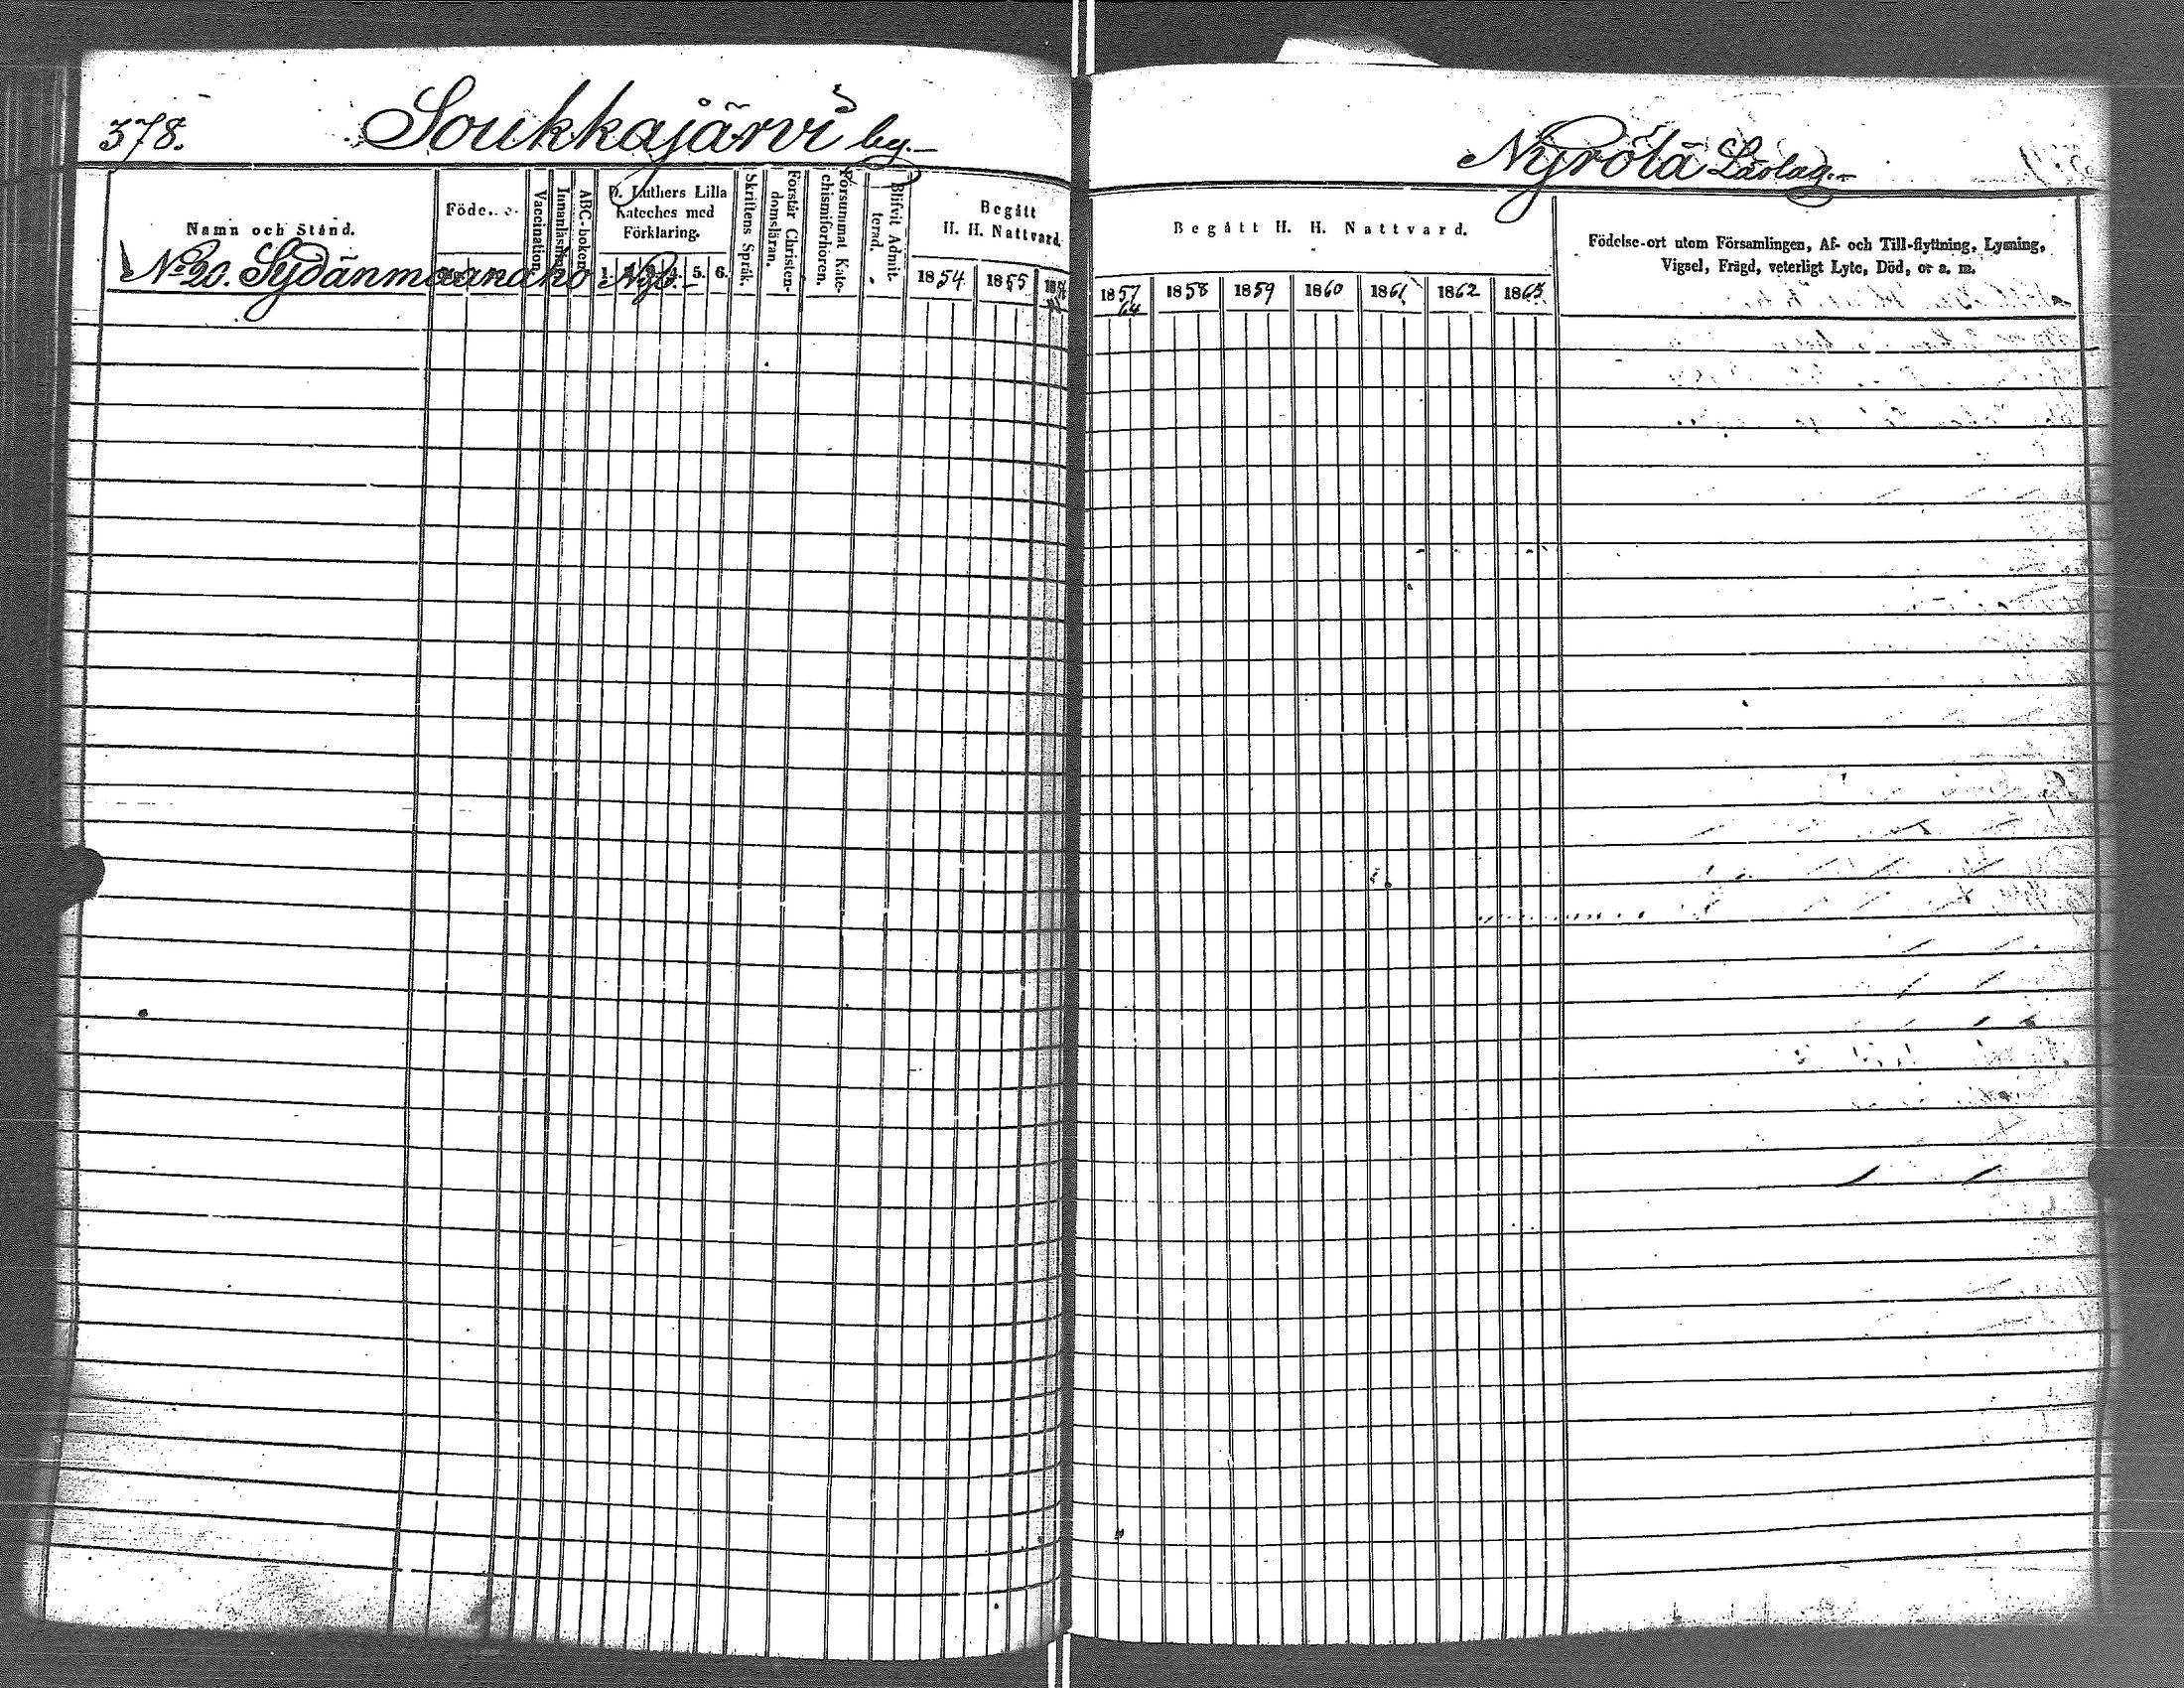 378. Soukkajärvi by.
Namn och Stånd.
Föde
Vaccination.
Innanläsning
ABC-boken
D. Luthers Lilla
Kateches med
Förklaring.
1. 2. 3. 4. 5. 6.
Skriftens Språk.
Förstår Christen-
domsläran.
Försummat Kate-
chismiförhören.
Blifvit Admit-
terad.
Begått
H. H. Nattvard.
1854 1855 1856
No 20. Sydänmaanaho Nyb.
Nyrölä Läslag.
Begått H. H. Nattvard.
1857 1858 1859 1860 1861 1862 1863
64
Födelse-ort utom Församlingen, Af- och Till-flyttning, Lysning,
Vigsel, Frägd, veterligt Lyte, Död, o. s. m.